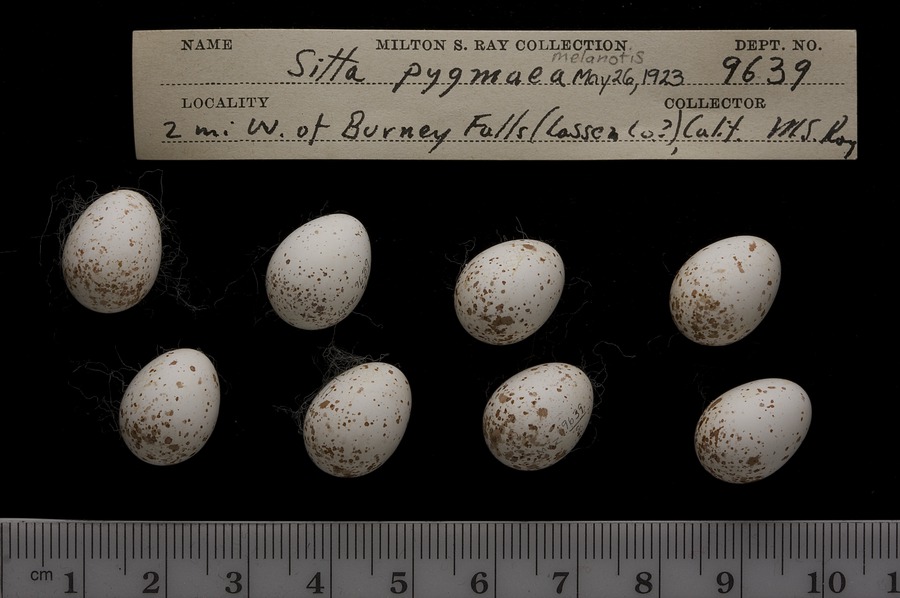 NAME MILTON S. RAY COLLECTION DEPT. NO.
melanotis
Sitta pygmaea May 26, 1923 9639
LOCALITY COLLECTOR
2 mi W. of Burney Falls (Lassen Co?), Calif. M.S. Ray
9639
cm 1 2 3 4 5 6 7 8 9 10 1